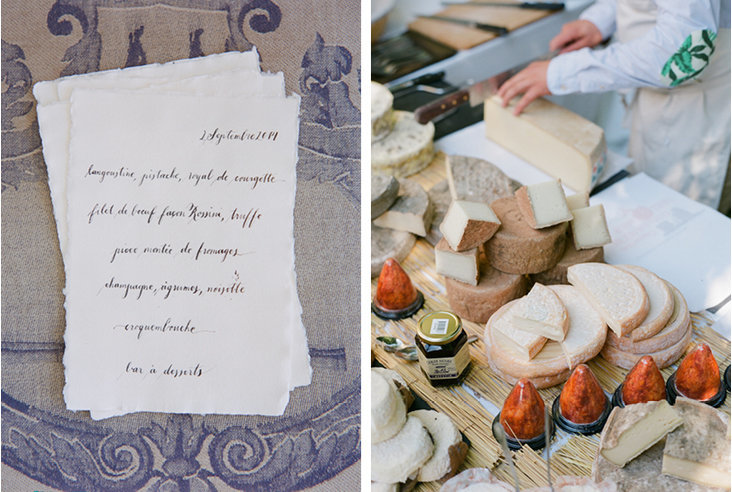 2 Septembre 2014
langoustine, pistache, royal de courgette
filet de bœuf façon Rossini, truffe
pièce montée de fromages
champagne, agrumes, noisette
croquembouche
bar à desserts